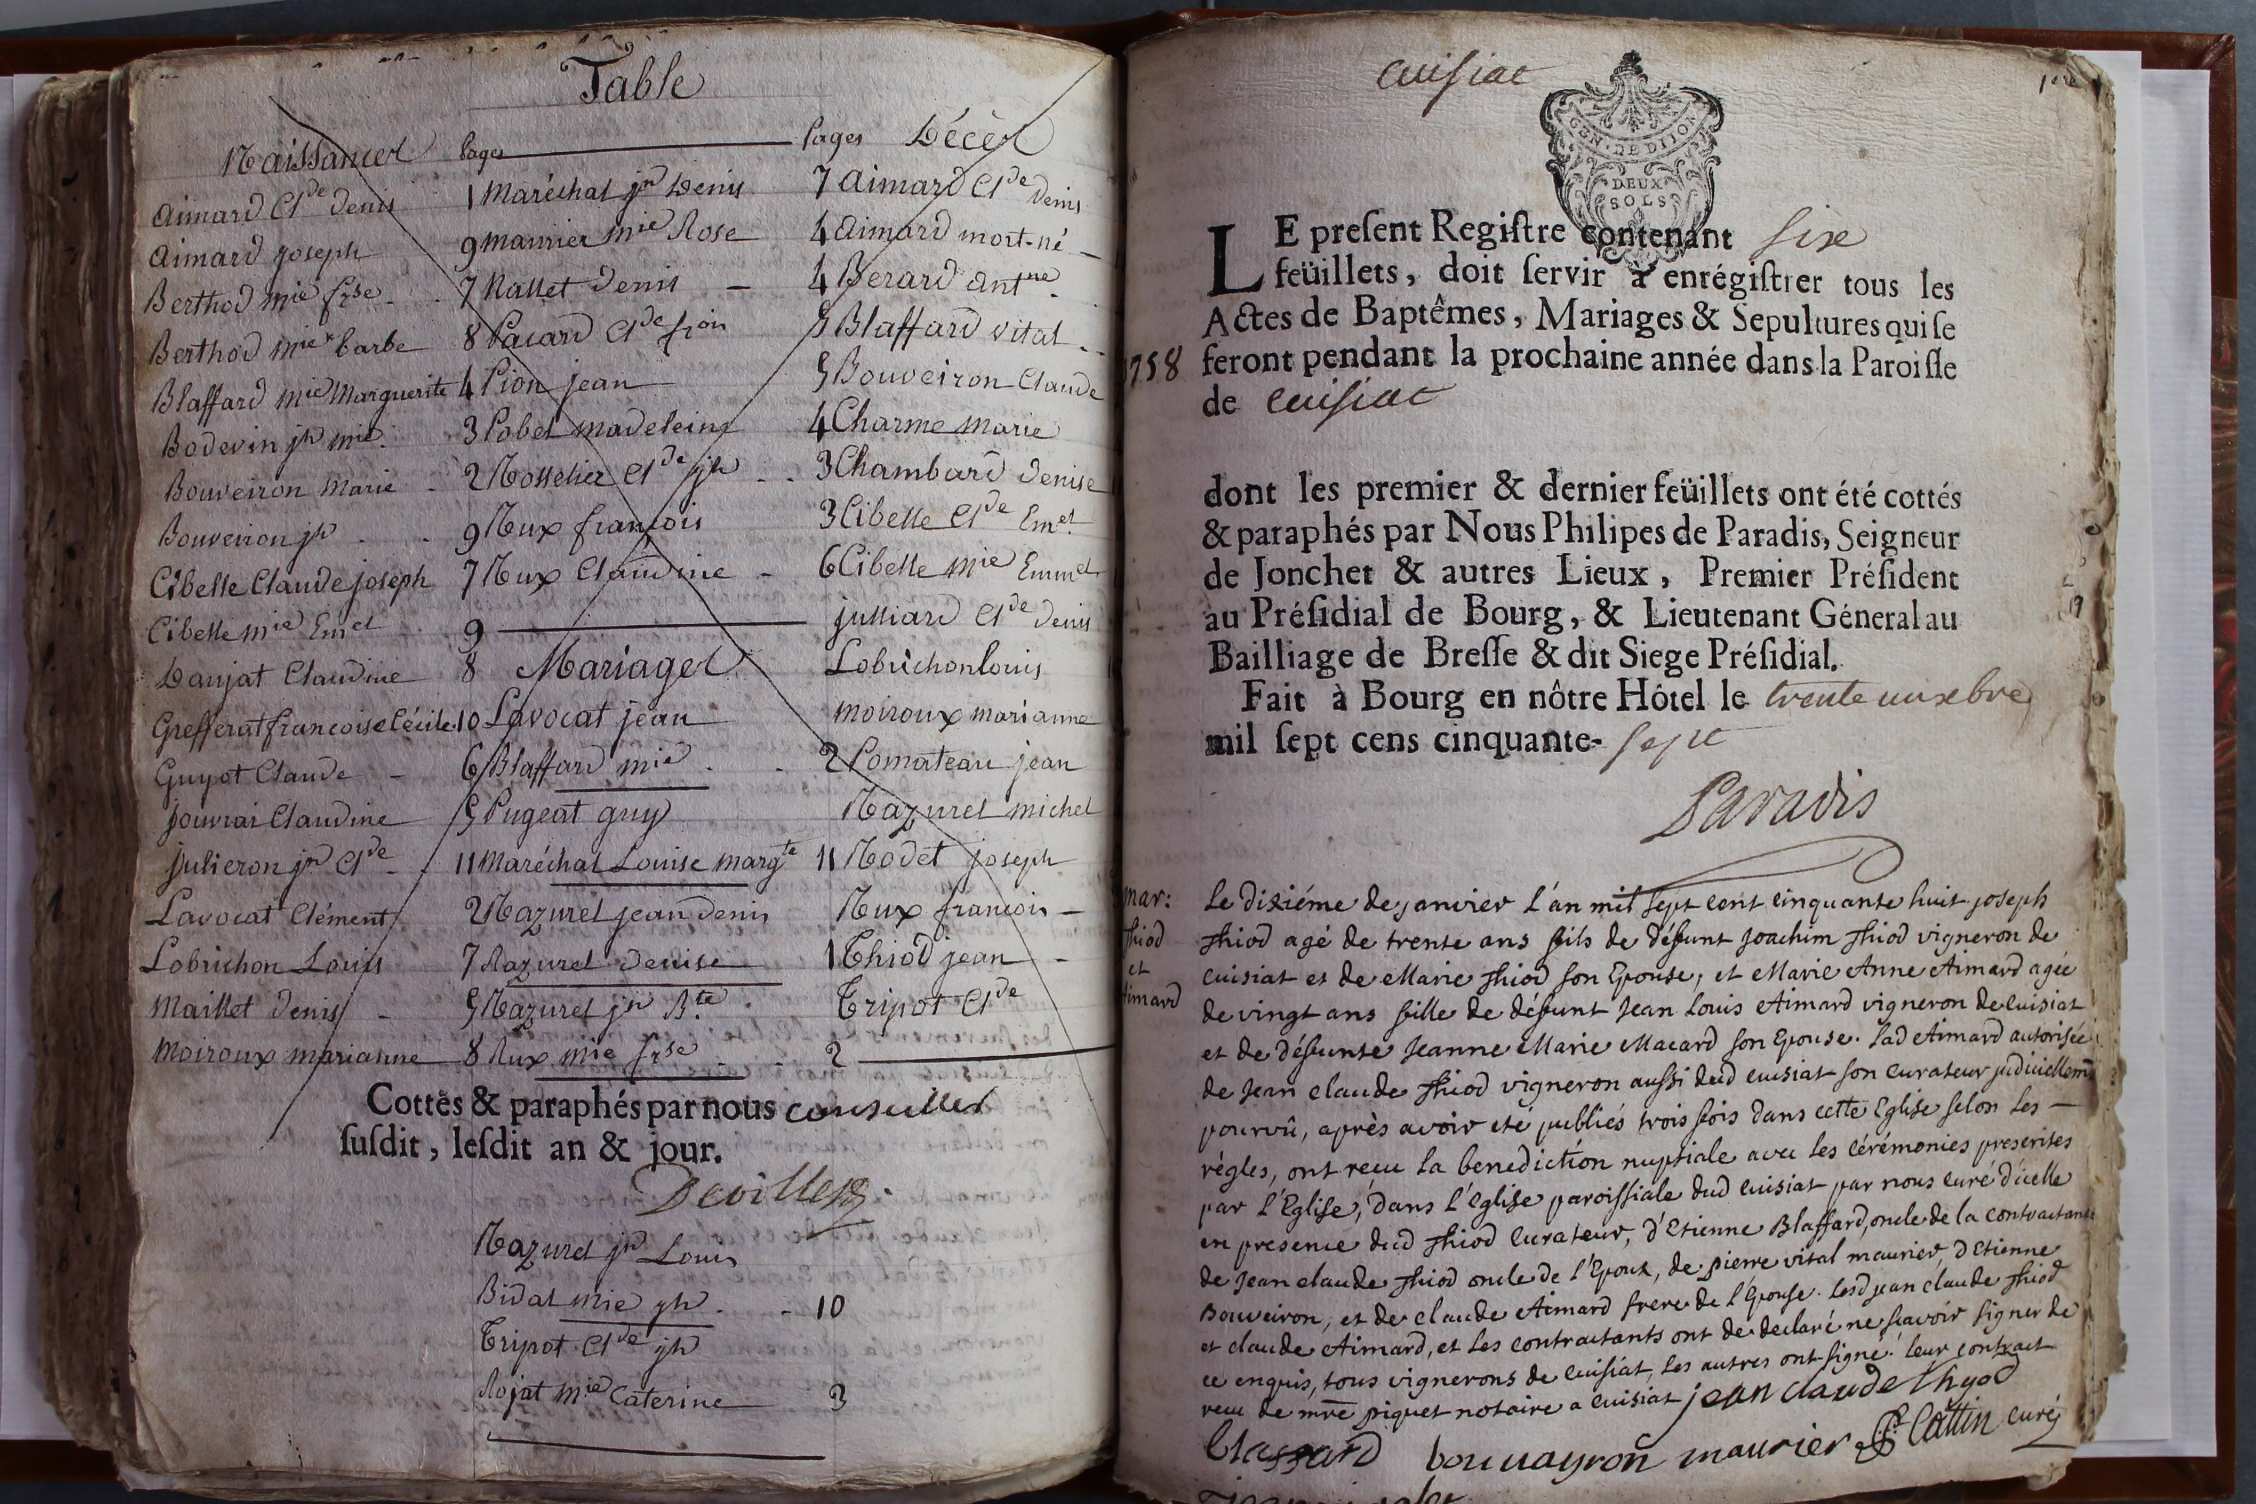 Table
Naissances Pages Pages Décès
Aimard Cl.de Denis 1 Maréchal jn Denis 7 Aimard Cl.de Denis
Aimard joseph 9 maurier mie Rose 4 Aimard mort-né
Berthod mie frse 7 Nallet Denis 4 Berard Ant.ne
Berthod mie barbe 8 Pacard Cl.de fçois 5 Blaffard vital
Blaffard mie Marguerite 4 Pion jean 5 Bouveiron Claude
Bodevin jh mie 3 Pobel madeleine 4 Charme marie
Bouveiron marie 2 Rosselier Cl.de jh 3 Chambard Denise
Bouveiron jh 9 Rux françois 3 Cibelle Cl.de Em.el
Cibelle Claude joseph 7 Rux Claudine 6 Cibelle mie Emm.el
Cibelle mie Em.el 9 julliard Cl.de Denis
Danjat Claudine 8 Mariages Lobrichon louis
Grefferat francoise Cécile 10 Lavocat jean moiroux marianne
Guyot Claude 6 Blaffard mie 2 Pomateau jean
jouvrai Claudine 5 Pugeat guy Nazuret michel
julieron jn Cl.de 11 Maréchal Louise marg.te 11 Rodet joseph
Lavocat Clément 2 Nazuret jean denis Rux françois
Lobrichon Louis 7 Razuret denise 1 Thiod jean
Maillet denis 5 Nazuret jn B.te Tripot Cl.de
Moiroux marianne 8 Rux mie frse 2
Cottés & paraphés par nous conseiller
susdit, lesdit an & jour.
Devillers
Nazuret jn Louis
Bidal mie jh 10
Tripot Cl.de jh
Rojat mie Caterine 3
cuisiat
1ere
GEN. DE DIJON
DEUX
SOLS
LE present Registre contenant six
feüillets, doit servir à enrégistrer tous les
Actes de Baptêmes, Mariages & Sepultures qui se
1758 feront pendant la prochaine année dans la Paroisse
de cuisiat
dont les premier & dernier feüillets ont été cottés
& paraphés par Nous Philipes de Paradis, Seigneur
de Jonchet & autres Lieux, Premier Président
au Présidial de Bourg, & Lieutenant Géneral au
Bailliage de Bresse & dit Siege Présidial.
Fait à Bourg en nôtre Hôtel le trente
mil sept cens cinquante- sept
Paradis
mar: Le dixiéme de janvier L'an mil sept cent cinquante huit joseph
thiod thiod agé de trente ans fils de défunt Joachim thiod vigneron de
et cuisiat et de Marie thiod son Epouse, et Marie Anne Aimard agée
Aimard de vingt ans fille de défunt Jean Louis Aimard vigneron de cuisiat
et de défunte Jeanne Marie Macard son Epouse. lad Aimard autorisée
de Jean claude thiod vigneron aussi dud cuisiat son curateur judiciellemt
pourvû, après avoir eté publiés trois fois dans cette Eglise selon les
règles, ont reçu la benediction nuptiale avec les cérémonies prescrites
par l'Eglise, dans l'église paroissiale dud cuisiat par nous curé d'icelle
en presence dud thiod curateur, d'Etienne Blaffard, oncle de la contractante
de Jean claude thiod oncle de l'Epoux, de pierre vital maurier, d'Etienne
Bouveiron, et de claude Aimard frere de l'Epouse. Lesd jean claude thiod
et claude Aimard, et les contractants ont de declaré ne sçavoir signer de
ce enquis, tous vignerons de cuisiat, les autres ont signé. leur contract
recu de mre piquet notaire a cuisiat jean claude thyod
blaffard bouvayron maurier Cattin curé